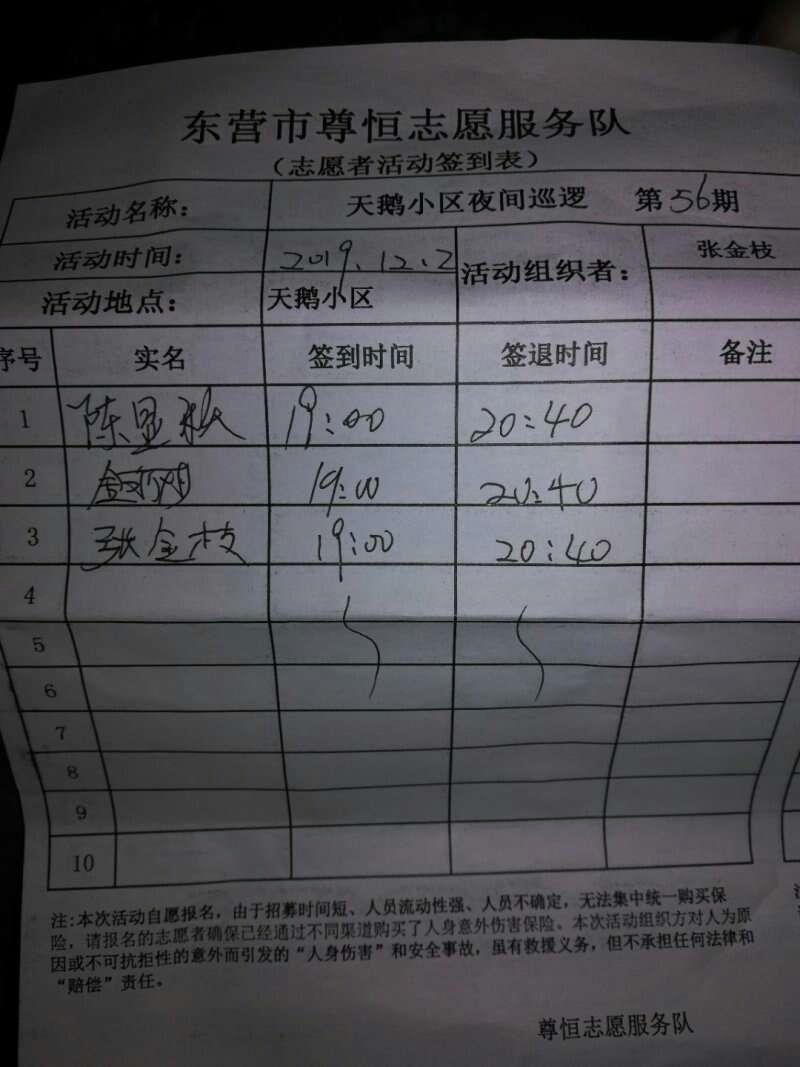 东营市尊恒志愿服务队
（志愿者活动签到表）
活动名称： 天鹅小区夜间巡逻 第56期
活动时间： 2019.12.2 活动组织者： 张金枝
活动地点： 天鹅小区
序号 实名 签到时间 签退时间 备注
1 陈显 19:00 20:40
2 19:00 20:40
3 张金枝 19:00 20:40
4
5
6
7
8
9
10
注:本次活动自愿报名，由于招募时间短、人员流动性强、人员不确定，无法集中统一购买保
险，请报名的志愿者确保已经通过不同渠道购买了人身意外伤害保险。本次活动组织方对人为原
因或不可抗拒性的意外而引发的“人身伤害”和安全事故，虽有救援义务，但不承担任何法律和
“赔偿”责任。
尊恒志愿服务队